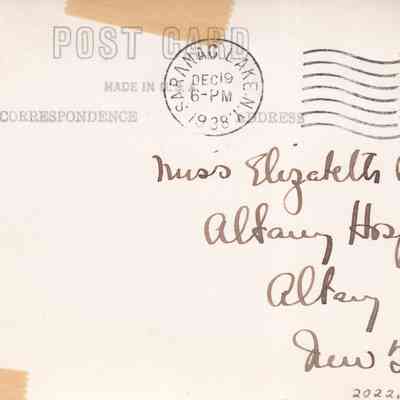 POST CARD
SARANAC LAKE. N.Y.
DEC 19
6-PM
1938
MADE IN U.S.A.
CORRESPONDENCE ADDRESS
Miss Elizabeth
Albany Hosp
Albany
New
2022.